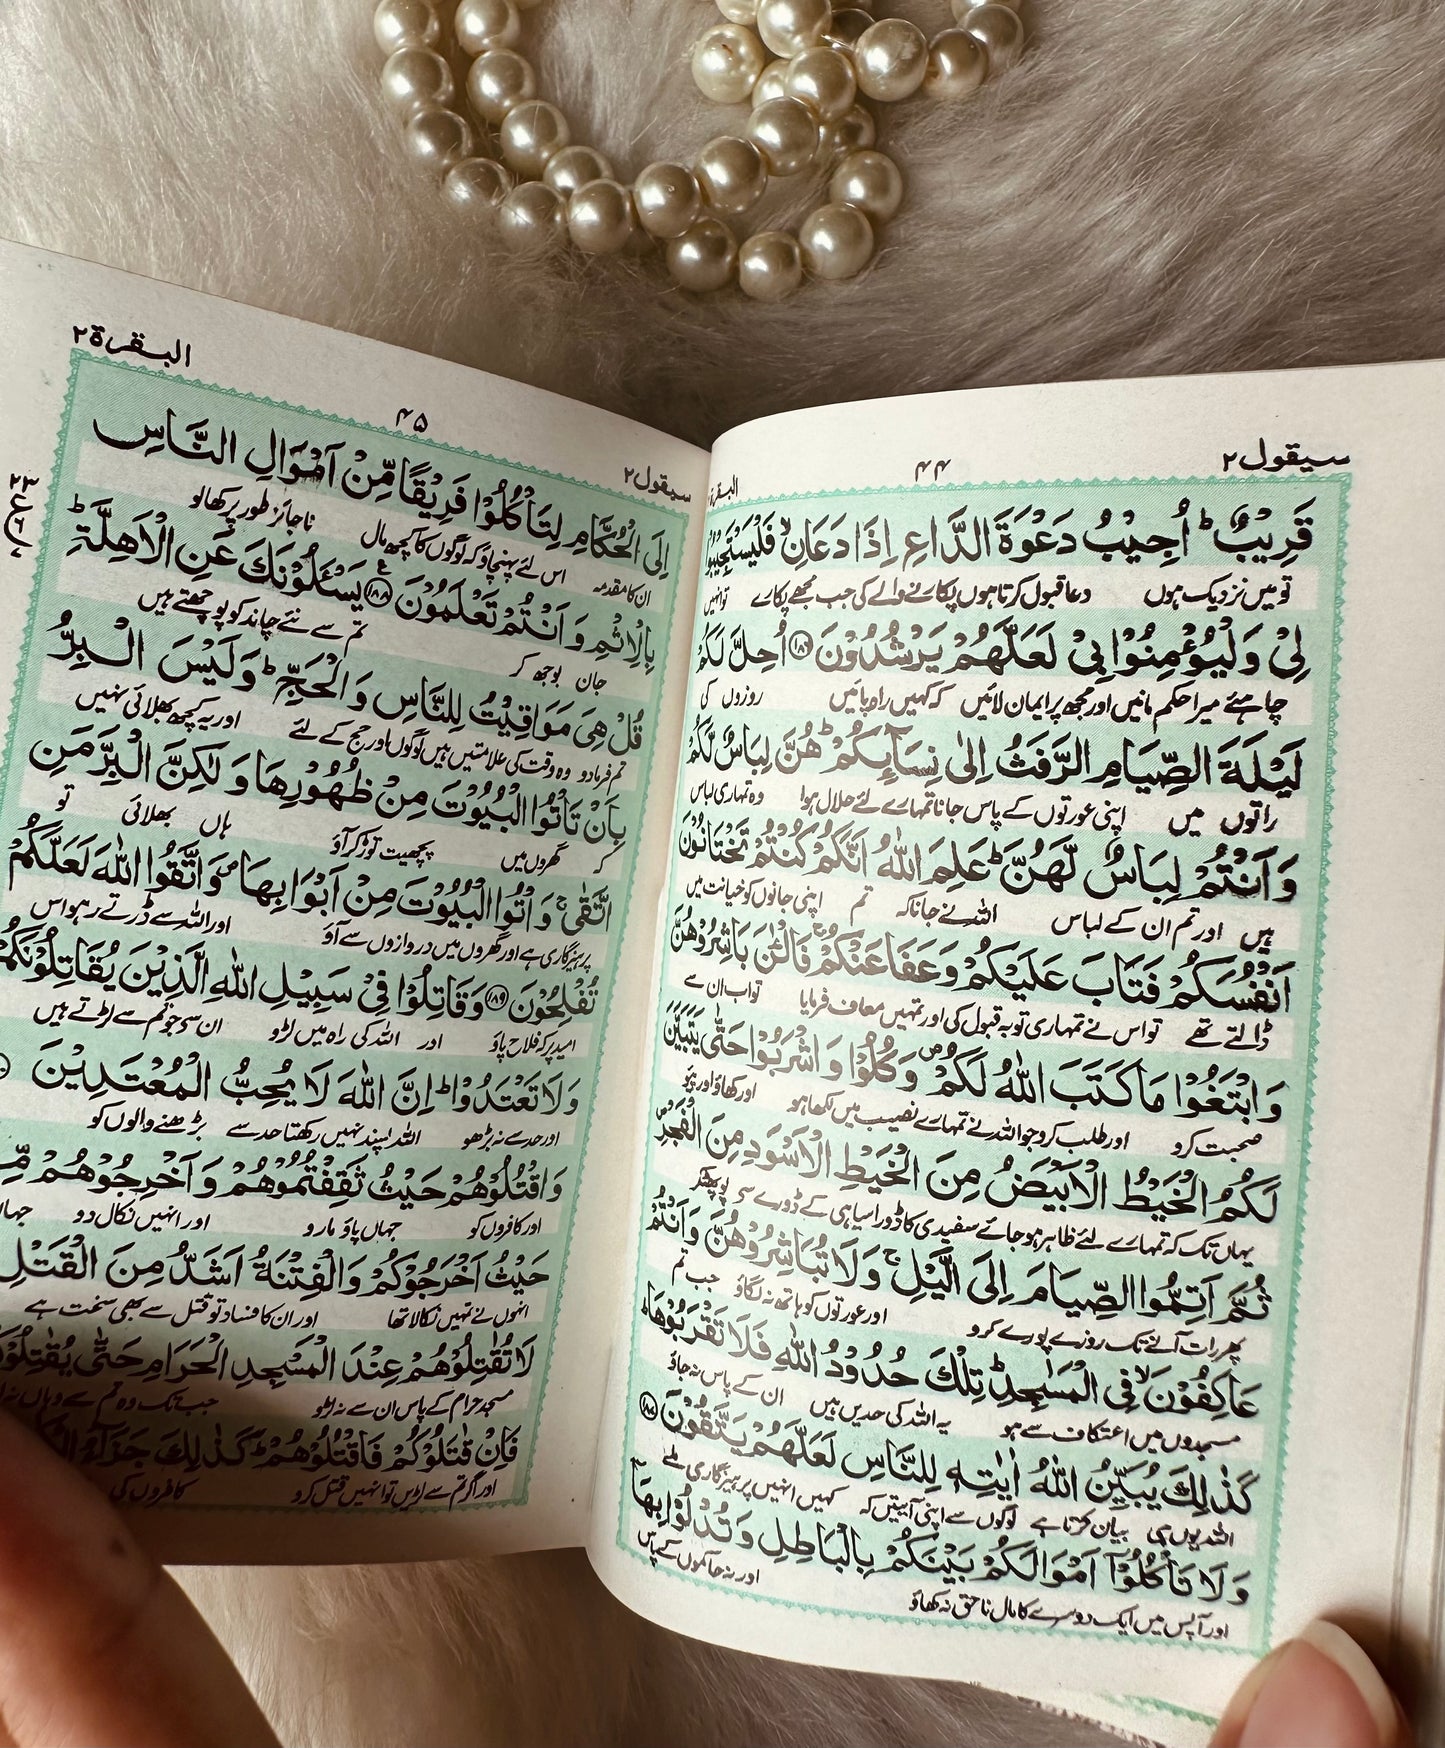 سيقول ٢
٤٤
البقرة
قَرِيْبٌ ؕ اُجِيْبُ دَعْوَةَ الدَّاعِ اِذَا دَعَانِ ۙ فَلْيَسْتَجِيْبُوْا
تو میں نزدیک ہوں دعا قبول کرتا ہوں پکارنے والے کی جب مجھے پکارے تو انہیں
لِيْ وَلْيُؤْمِنُوْا بِيْ لَعَلَّهُمْ يَرْشُدُوْنَ ﴿۱۸۶﴾ اُحِلَّ لَكُمْ
چاہئے میرا حکم مانیں اور مجھ پر ایمان لائیں کہ کہیں راہ پائیں روزوں کی
لَيْلَةَ الصِّيَامِ الرَّفَثُ اِلٰى نِسَآىِٕكُمْ ؕ هُنَّ لِبَاسٌ لَّكُمْ
راتوں میں اپنی عورتوں کے پاس جانا تمہارے لئے حلال ہوا وہ تمہاری لباس
وَاَنْتُمْ لِبَاسٌ لَّهُنَّ ؕ عَلِمَ اللّٰهُ اَنَّكُمْ كُنْتُمْ تَخْتَانُوْنَ
ہیں اور تم ان کے لباس اللہ نے جانا کہ تم اپنی جانوں کو خیانت میں
اَنْفُسَكُمْ فَتَابَ عَلَيْكُمْ وَعَفَا عَنْكُمْ ۚ فَالْـٰٔنَ بَاشِرُوْهُنَّ
ڈالتے تھے تو اس نے تمہاری توبہ قبول کی اور تمہیں معاف فرمایا تو اب ان سے
وَابْتَغُوْا مَا كَتَبَ اللّٰهُ لَكُمْ ۪ وَكُلُوْا وَاشْرَبُوْا حَتّٰى يَتَبَيَّنَ
صحبت کرو اور طلب کرو جو اللہ نے تمہارے نصیب میں لکھا ہو اور کھاؤ اور پیو
لَكُمُ الْخَيْطُ الْاَبْيَضُ مِنَ الْخَيْطِ الْاَسْوَدِ مِنَ الْفَجْرِ ۪
یہاں تک کہ تمہارے لئے ظاہر ہو جائے سفیدی کا ڈورا سیاہی کے ڈورے سے پو پھٹ کر
ثُمَّ اَتِمُّوا الصِّيَامَ اِلَى الَّيْلِ ۚ وَلَا تُبَاشِرُوْهُنَّ وَاَنْتُمْ
پھر رات آنے تک روزے پورے کرو اور عورتوں کو ہاتھ نہ لگاؤ جب تم
عَاكِفُوْنَ ۙ فِي الْمَسٰجِدِ ؕ تِلْكَ حُدُوْدُ اللّٰهِ فَلَا تَقْرَبُوْهَا ؕ
مسجدوں میں اعتکاف سے ہو یہ اللہ کی حدیں ہیں ان کے پاس نہ جاؤ
كَذٰلِكَ يُبَيِّنُ اللّٰهُ اٰيٰتِهٖ لِلنَّاسِ لَعَلَّهُمْ يَتَّقُوْنَ ﴿۱۸۷﴾
اللہ یوں ہی بیان کرتا ہے لوگوں سے اپنی آیتیں کہ کہیں انہیں پرہیزگاری ملے
وَلَا تَاْكُلُوْۤا اَمْوَالَكُمْ بَيْنَكُمْ بِالْبَاطِلِ وَتُدْلُوْا بِهَاۤ
اور آپس میں ایک دوسرے کا مال ناحق نہ کھاؤ اور نہ حاکموں کے پاس
سيقول ٢
٤٥
البقرة ٢
اِلَى الْحُكَّامِ لِتَاْكُلُوْا فَرِيْقًا مِّنْ اَمْوَالِ النَّاسِ
ان کا مقدمہ اس لئے پہنچاؤ کہ لوگوں کا کچھ مال ناجائز طور پر کھا لو
بِالْاِثْمِ وَاَنْتُمْ تَعْلَمُوْنَ ﴿۱۸۸﴾ يَسْـَٔلُوْنَكَ عَنِ الْاَهِلَّةِ ؕ
جان بوجھ کر تم سے نئے چاند کو پوچھتے ہیں
قُلْ هِيَ مَوَاقِيْتُ لِلنَّاسِ وَالْحَجِّ ؕ وَلَيْسَ الْبِرُّ
تم فرما دو وہ وقت کی علامتیں ہیں لوگوں اور حج کے لئے اور یہ کچھ بھلائی نہیں
بِاَنْ تَاْتُوا الْبُيُوْتَ مِنْ ظُهُوْرِهَا وَلٰكِنَّ الْبِرَّ مَنِ
کہ گھروں میں پچھیت توڑ کر آؤ ہاں بھلائی تو
اتَّقٰى ۚ وَاْتُوا الْبُيُوْتَ مِنْ اَبْوَابِهَا ۪ وَاتَّقُوا اللّٰهَ لَعَلَّكُمْ
پرہیزگاری ہے اور گھروں میں دروازوں سے آؤ اور اللہ سے ڈرتے رہو اس
تُفْلِحُوْنَ ﴿۱۸۹﴾ وَقَاتِلُوْا فِيْ سَبِيْلِ اللّٰهِ الَّذِيْنَ يُقَاتِلُوْنَكُمْ
امید پر کہ فلاح پاؤ اور اللہ کی راہ میں لڑو ان سے جو تم سے لڑتے ہیں
وَلَا تَعْتَدُوْا ؕ اِنَّ اللّٰهَ لَا يُحِبُّ الْمُعْتَدِيْنَ
اور حد سے نہ بڑھو اللہ پسند نہیں رکھتا حد سے بڑھنے والوں کو
وَاقْتُلُوْهُمْ حَيْثُ ثَقِفْتُمُوْهُمْ وَاَخْرِجُوْهُمْ مِّنْ
اور کافروں کو جہاں پاؤ مارو اور انہیں نکال دو جہاں
حَيْثُ اَخْرَجُوْكُمْ وَالْفِتْنَةُ اَشَدُّ مِنَ الْقَتْلِ
انہوں نے تمہیں نکالا تھا اور ان کا فساد تو قتل سے بھی سخت ہے
لَا تُقٰتِلُوْهُمْ عِنْدَ الْمَسْجِدِ الْحَرَامِ حَتّٰى
مسجد حرام کے پاس ان سے نہ لڑو جب تک وہ تم سے وہاں نہ
فَاِنْ قٰتَلُوْكُمْ فَاقْتُلُوْهُمْ ؕ كَذٰلِكَ جَزَآءُ
اور اگر تم سے لڑیں تو انہیں قتل کرو کافروں کی